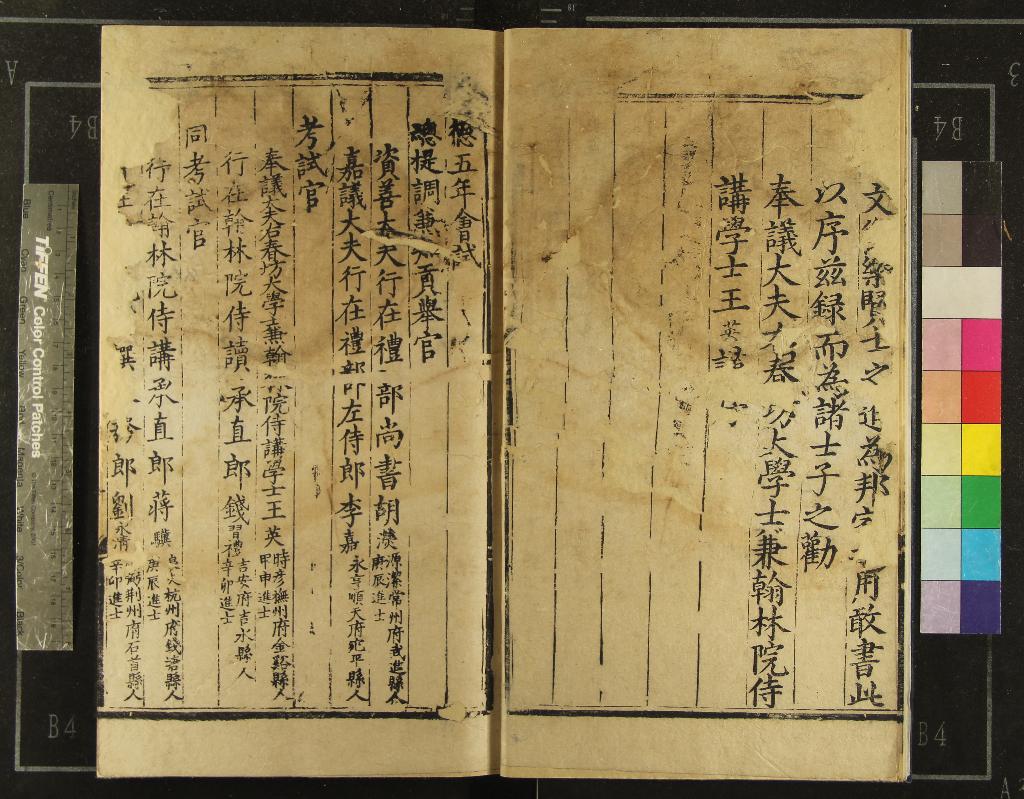 樂賢士之進為邦家用敢書此
以序兹録而為諸士子之勸
奉議大夫右春坊大學士兼翰林院侍
講學士王英謹
德五年會試
總提調兼知貢舉官
資善大夫行在禮部尚書胡濙源潔常州府武進縣人庚辰進士
嘉議大夫行在禮部左侍郎李嘉永亨順天府宛平縣人
考試官
奉議大夫右春坊大學士兼翰林院侍講學士王英時彥撫州府金谿縣人甲申進士
行在翰林院侍讀承直郎錢習禮吉安府吉水縣人辛卯進士
同考試官
行在翰林院侍講承直郎蔣驥杭州府錢塘縣人庚辰進士
撰修郎劉永清荆州府石首縣人辛卯進士
TIFFEN Color Control Patches
B4
B4
B4
B4
A
A
3